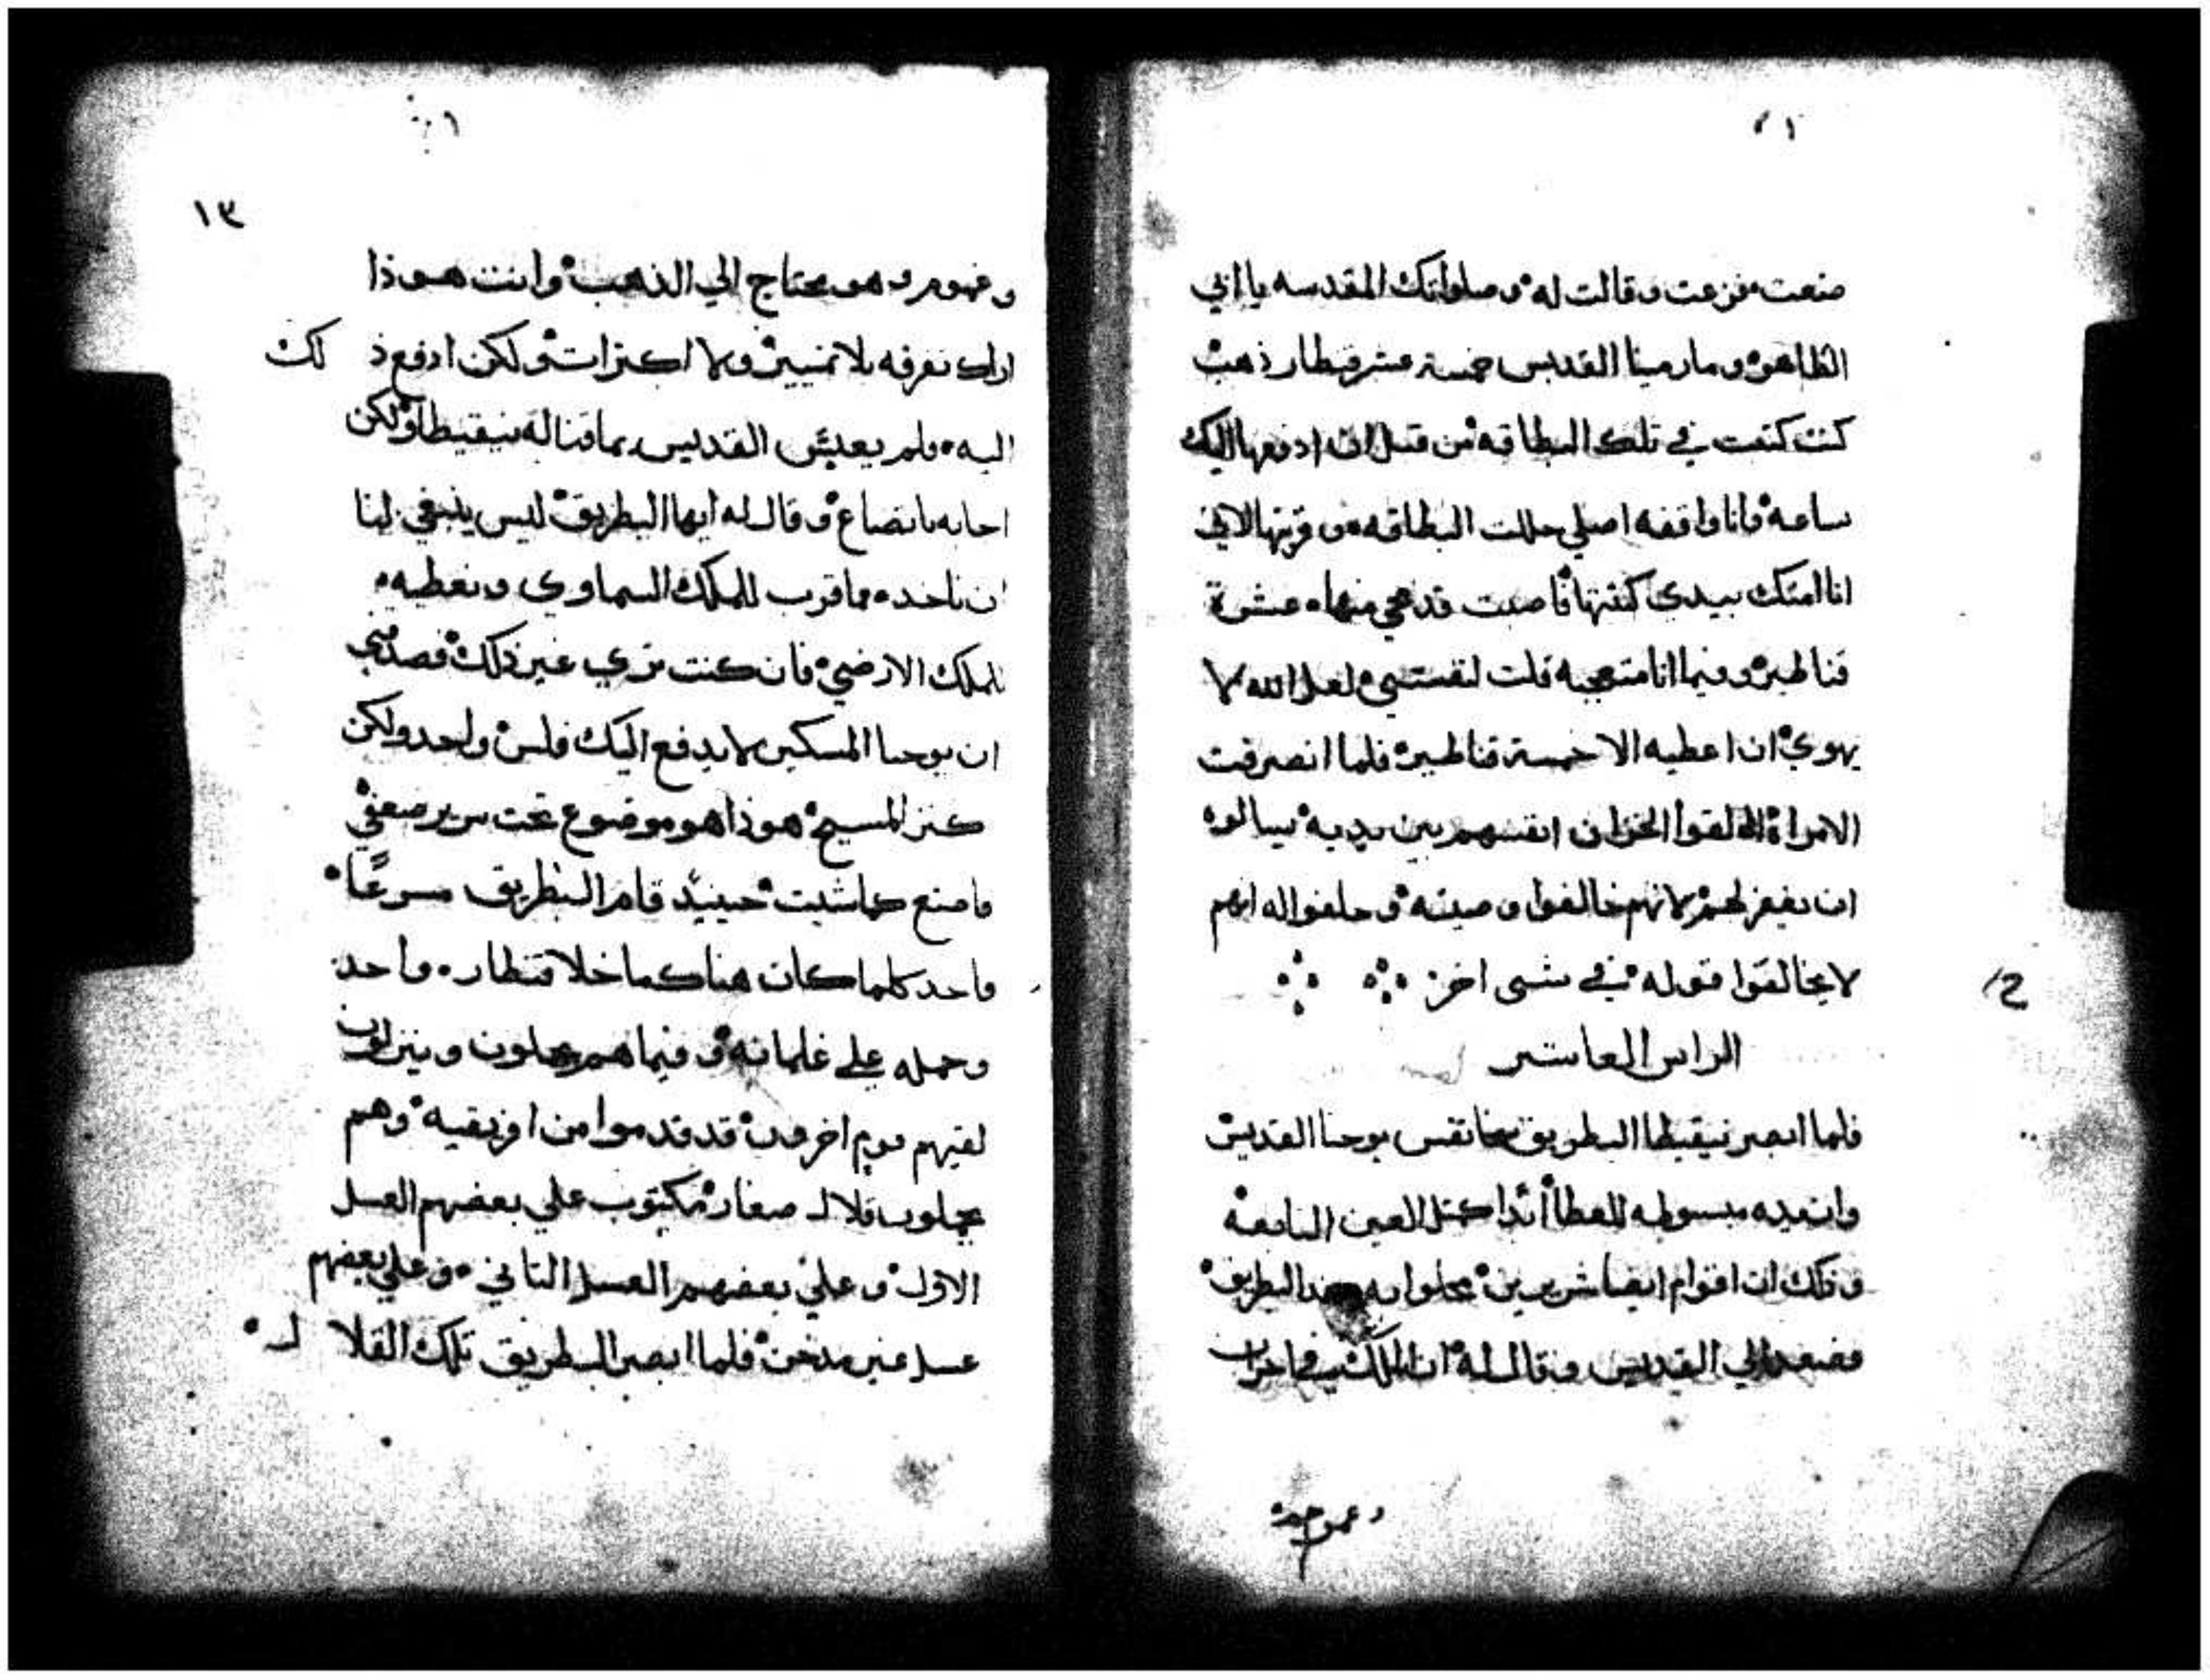 صنعت فزعت وقالت له وصلواتك المقدسه يا ابي
الطاهره ومار مينا القديس خمسة عشر قنطار ذهب
كنت كتبت في تلك البطاقه من قبل ان ادفعها اليك
ساعه وانا واقفه اصلي حللت البطاقه وقريتها لاني
انا امتك بيدي كتبتها فاصبت قد محي منها عشرة
قناطير وفيما انا متعجبه قلت لنفسي لعل الله لا
يهوي ان اعطيه الا خمسة قناطير فلما انصرفت
الامراة القوا الخزان انفسهم بين يديه يسالوه
ان يغفر لهم لانهم خالفوا وصيته وحلفوا له انهم
لا يخالفوا قوله في شى اخر
الراس العاشر
فلما ابصر نيقيطا البطريق سخا نفس يوحنا القديس
وان يديه مبسوطه للعطا أبدا كمثل العين النابعه
وذلك ان اقوام ايضا شريرين محلوا به عند البطريق
فصعد الي القديس وقال له ان الملك في احزان
١٣
وغموم وهو محتاج الي الذهب وانت هوذا
اراك تفرقه بلا تمييز ولا اكترات ولكن ادفع ذ لك
اليه فلم يعبس القديس بما قتاله نيقيطا ولكن
اجابه باتضاع وقال له ايها البطريق ليس ينبغي لنا
ان ناخد ما قرب للملك السماوي ونعطيه
للملك الارضي فان كنت تري غير ذلك فصدقني
ان يوحنا المسكين لا يدفع اليك فلس واحد ولكن
كنز المسيح هوذا هو موضوع تحت سرير ضعفي
فاصنع كما شيت حينيد قام البطريق مسرعًا
فاخد كلما كان هناك ما خلا قنطار واحد
وحمله على غلمانه وفيما هم يحملون وينزلون
لقيهم قوم اخرون قد قدموا من افريقيه وهم
يحملون قلال صغار مكتوب علي بعضهم العسل
الاول وعلي بعضهم العسل التاني وعلي بعضهم
عسل غير مدخن فلما ابصر البطريق تلك القلا ل